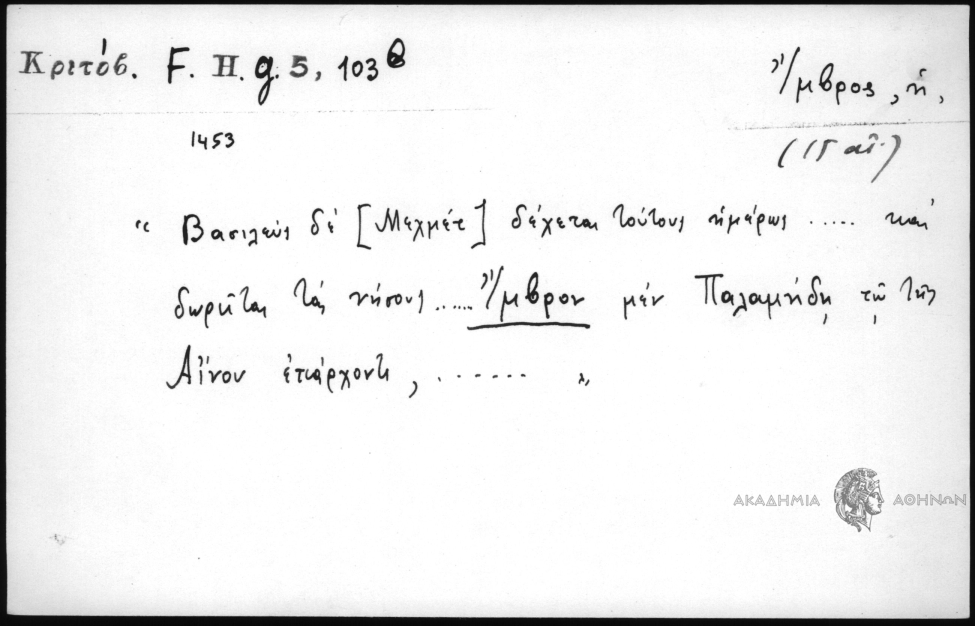 Κριτόβ. F. H. g. 5, 103 θ
Ἴμβρος, ἡ,
1453
(15 αἰ.)
“ Βασιλεὺς δὲ [Μεχμὲτ] δέχεται τούτους ἡμέρως ..... καὶ
δωρεῖται τὰς νήσους ..... Ἴμβρον μὲν Παλαμήδῃ τῷ τῆς
Αἴνου ἐπάρχοντι, ....... ”
ΑΚΑΔΗΜΙΑ ΑΘΗΝΩΝ